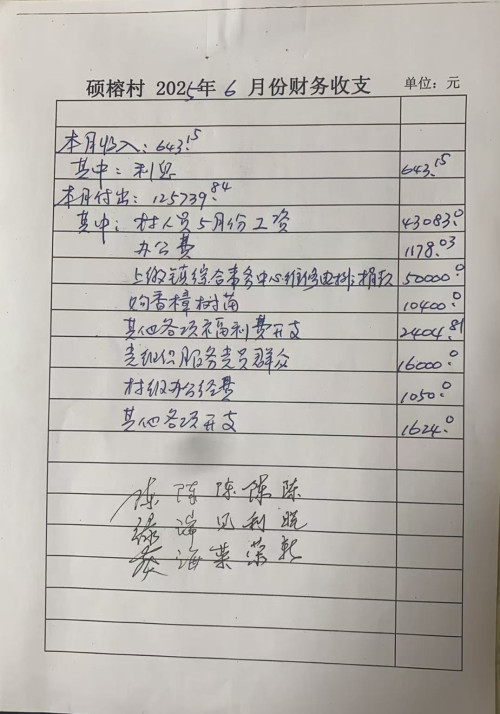 硕榕村 2025年 6 月份财务收支 单位：元
本月收入：643.15
其中：利息 643.15
本月付出：125739.84
其中：村人员5月份工资 43083.0
办公费 1178.03
上缴镇综合事务中心维修电排捐款 50000.0
购香樟树苗 10400.0
其他各项福利费开支 2404.81
党组织服务党员群众 16000.0
村级办公经费 1050.0
其他各项开支 1624.0
陈 陈 陈 陈 陈
瑞 见 利 晓
海 荣 乾